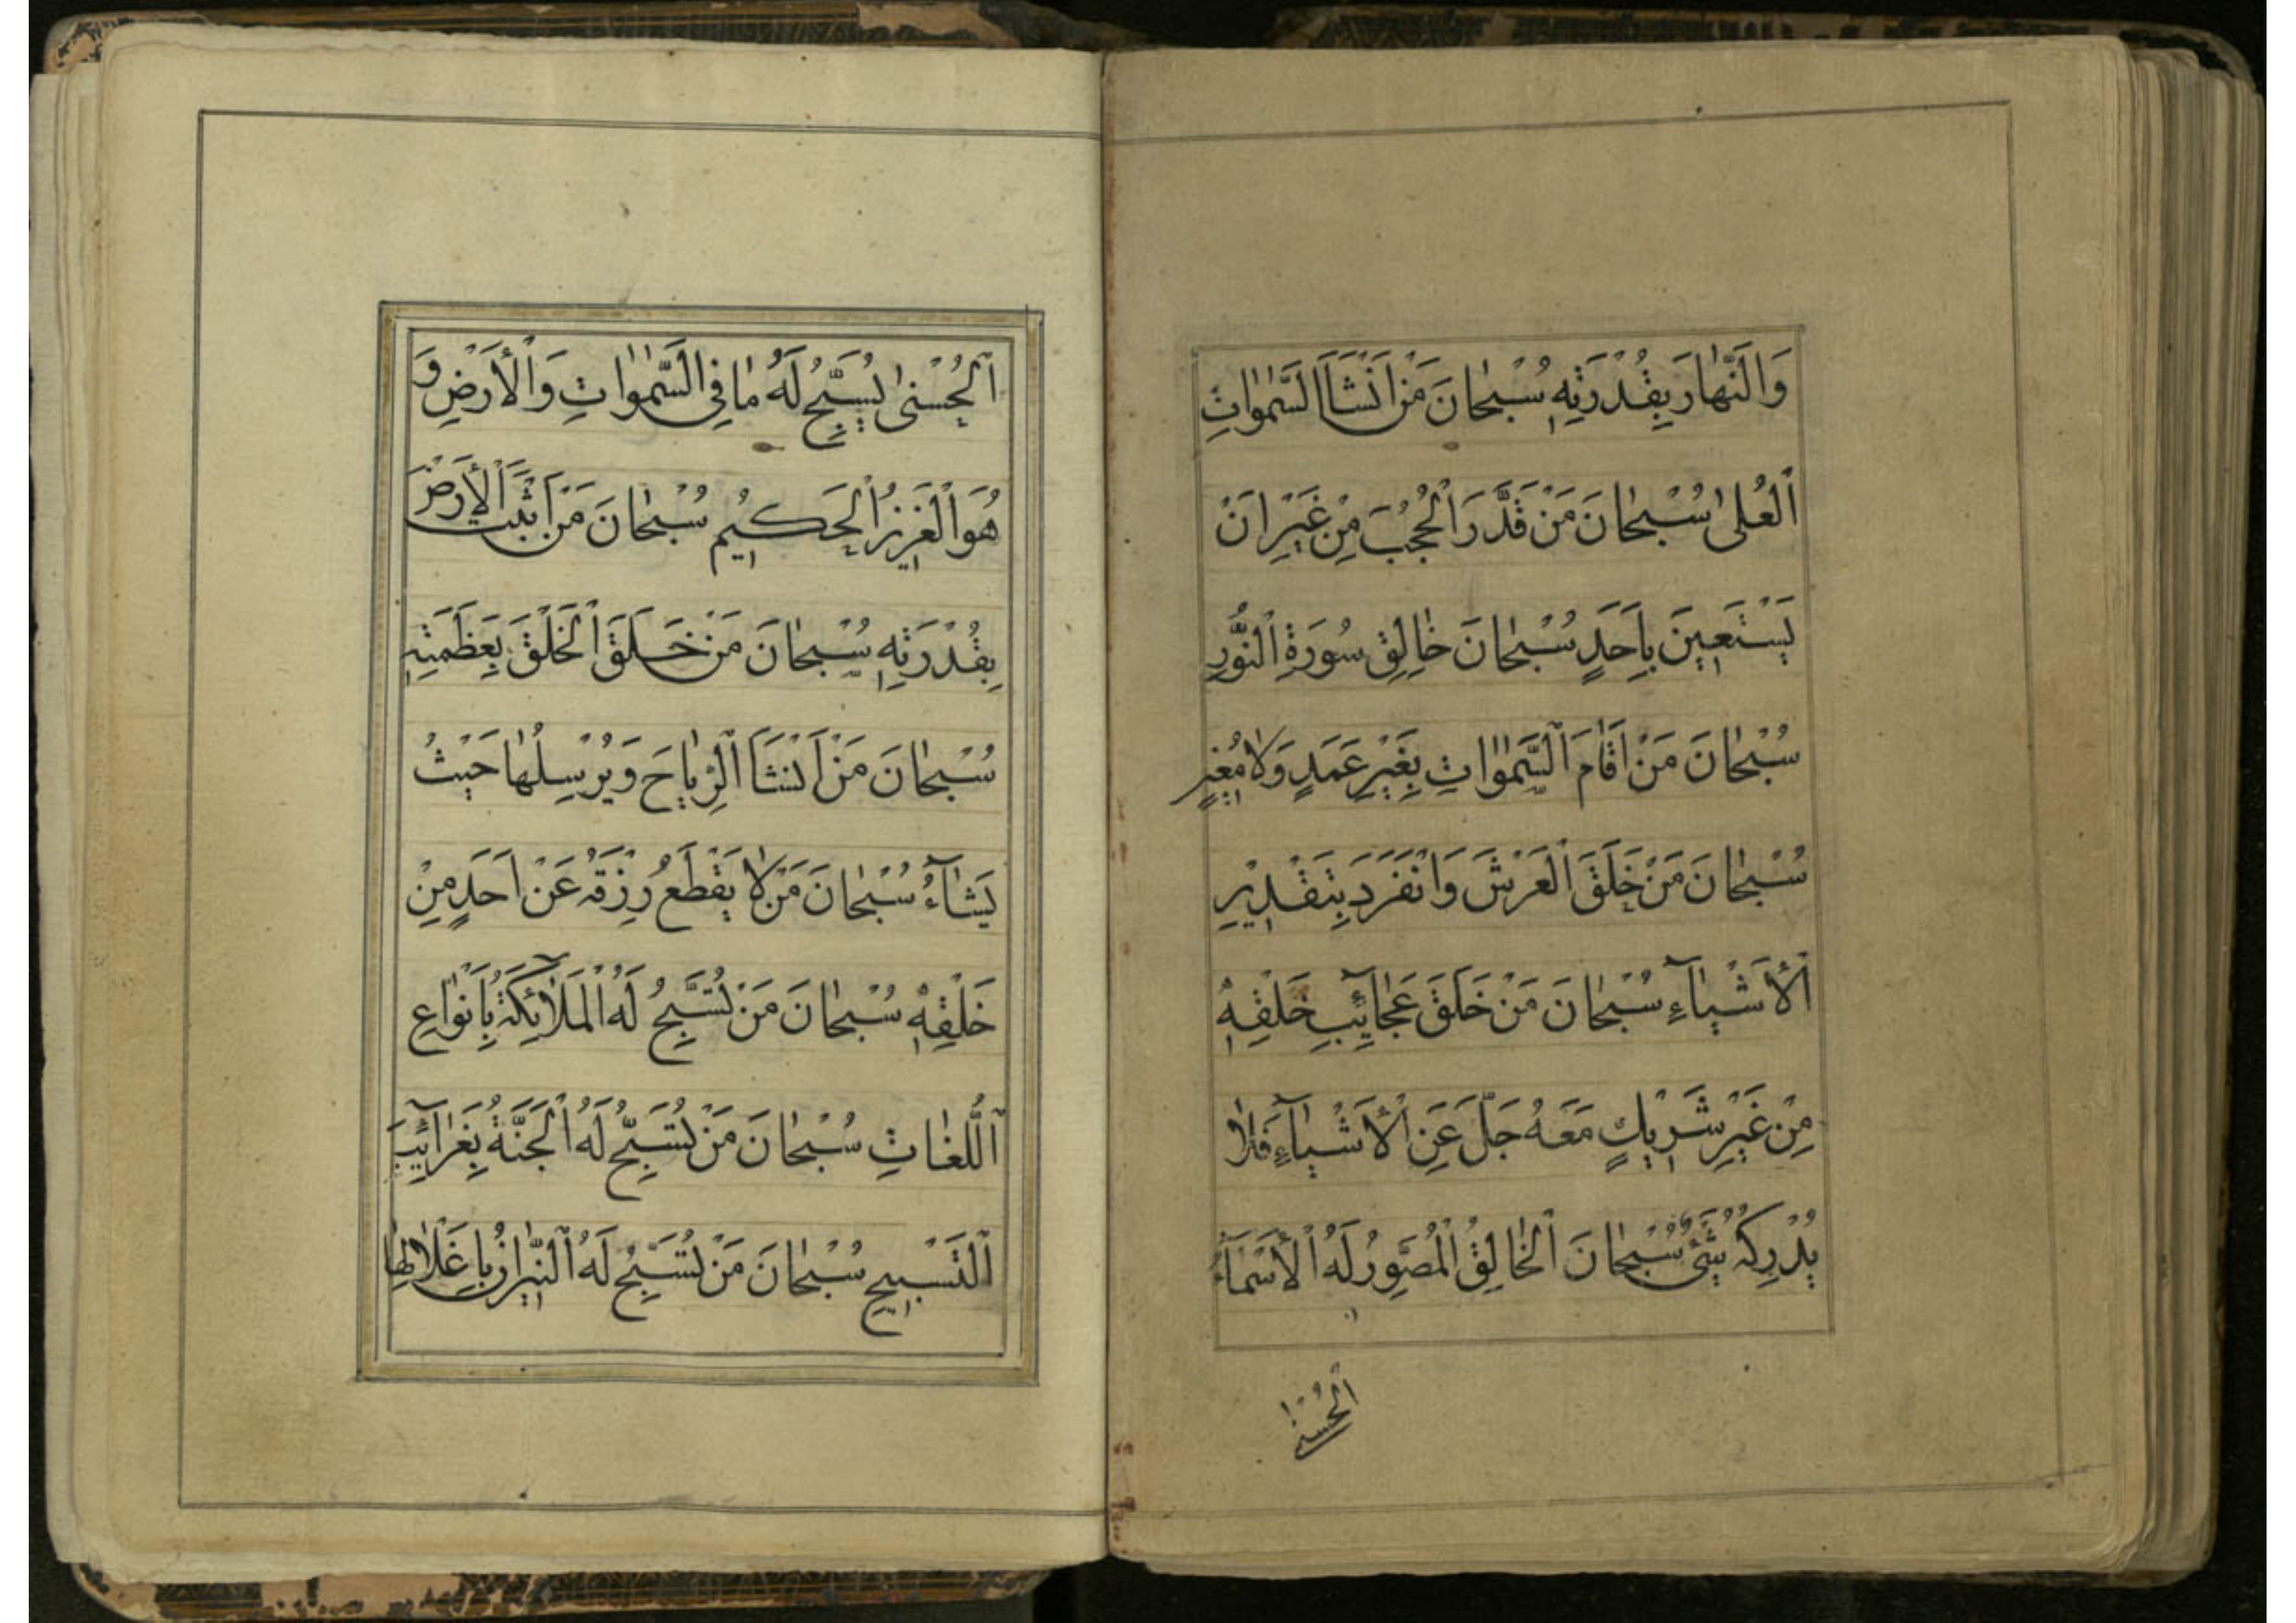 وَالنَّهٰارَ بِقُدْرَتِهِ سُبْحٰانَ مَنْ اَنْشَاَ السَّمٰوٰاتِ
اَلْعُلىٰ سُبْحٰانَ مَنْ قَدَّرَ الْحُجُبَ مِنْ غَيْرِ اَنْ
يَسْتَعِينَ بِاَحَدٍ سُبْحٰانَ خٰالِقِ سُورَةِ النُّورِ
سُبْحٰانَ مَنْ اَقٰامَ السَّمٰوٰاتِ بِغَيْرِ عَمَدٍ وَلٰا مُغِيرٍ
سُبْحٰانَ مَنْ خَلَقَ الْعَرْشَ وَانْفَرَدَ بِتَقْدِيرِ
الْأَشْيٰآءِ سُبْحٰانَ مَنْ خَلَقَ عَجٰائِبِ خَلْقِهِ
مِنْ غَيْرِ شَرِيكٍ مَعَهُ جَلَّ عَنِ الْأَشْيٰآءِ فَلٰا
يُدْرِكُهُ شَيْءٌ سُبْحٰانَ الْخٰالِقُ الْمُصَوِّرُ لَهُ الْأَسْمٰآءُ
الْحُسْنىٰ
اَلْحُسْنىٰ يُسَبِّحُ لَهُ مٰا فِي السَّمٰوٰاتِ وَالْأَرْضِ وَ
هُوَ الْعَزِيزُ الْحَكِيمُ سُبْحٰانَ مَنْ اَثْبَتَ الْأَرْضَ
بِقُدْرَتِهِ سُبْحٰانَ مَنْ خَلَقَ الْخَلْقَ بِعَظَمَتِهِ
سُبْحٰانَ مَنْ اَنْشَاَ الرِّيٰاحَ وَيُرْسِلُهٰا حَيْثُ
يَشٰآءُ سُبْحٰانَ مَنْ لٰا يَقْطَعُ رِزْقَهُ عَنْ اَحَدٍ مِنْ
خَلْقِهِ سُبْحٰانَ مَنْ تُسَبِّحُ لَهُ الْمَلٰآئِكَةُ بِاَنْوٰاعِ
اَللُّغٰاتِ سُبْحٰانَ مَنْ تُسَبِّحُ لَهُ الْجَنَّةُ بِغَرٰآئِبِ
اَلتَّسْبِيحِ سُبْحٰانَ مَنْ تُسَبِّحُ لَهُ النِّيرٰانُ بِاَغْلٰالِهٰا